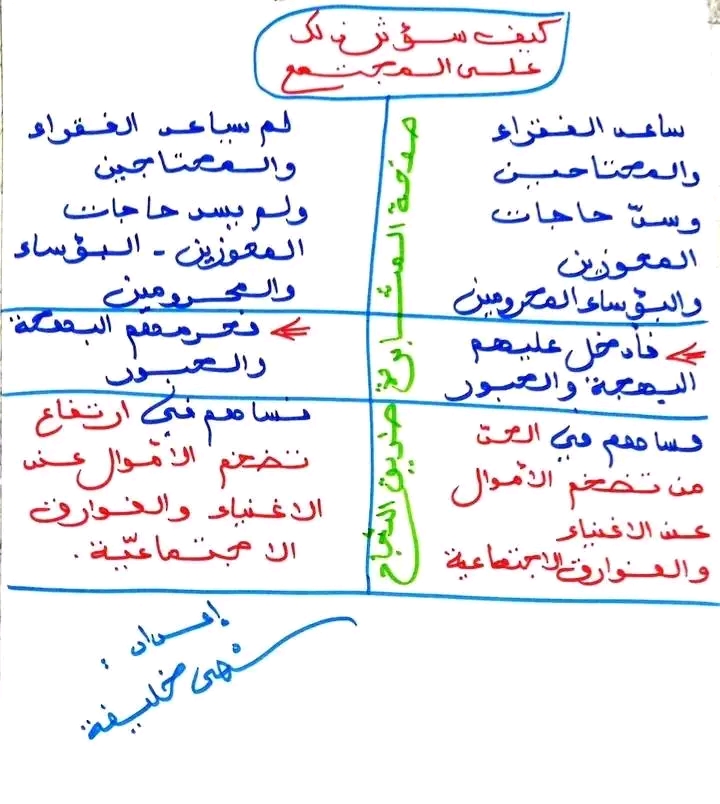 كيف سيؤثر ذلك
على المجتمع
ساعد الفقراء
والمحتاجين
وسدّ حاجات
المعوزين
والبؤساء المحرومين
فأدخل عليهم
البهجة والحبور
فساهم في الحدّ
من تضخم الأموال
عند الاغنياء
والفوارق الاجتماعية
صفحة المثابرة
طريق النجاح
لم يساعد الفقراء
والمحتاجين
ولم يسد حاجات
المعوزين - البؤساء
والمحرومين
فحرمهم البهجة
والحبور
فساهم في ارتفاع
تضخم الأموال عند
الاغنياء والفوارق
الاجتماعيّة.
إعداد:
نهى خليفة